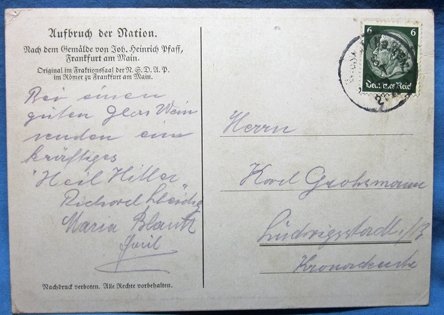 Aufbruch der Nation.
Nach dem Gemälde von Joh. Heinrich Pfaff,
Frankfurt am Main.
Original im Fraktionssaal der N. S. D. A. P.
im Römer zu Frankfurt am Main.
Bei einen
guten Glas Wein
senden ein
kräftiges
"Heil Hitler
Richard
Maria
6 6
Deutsches Reich
Herrn
Karl Grohsmann
Ludwigsstadt
Nachdruck verboten. Alle Rechte vorbehalten.